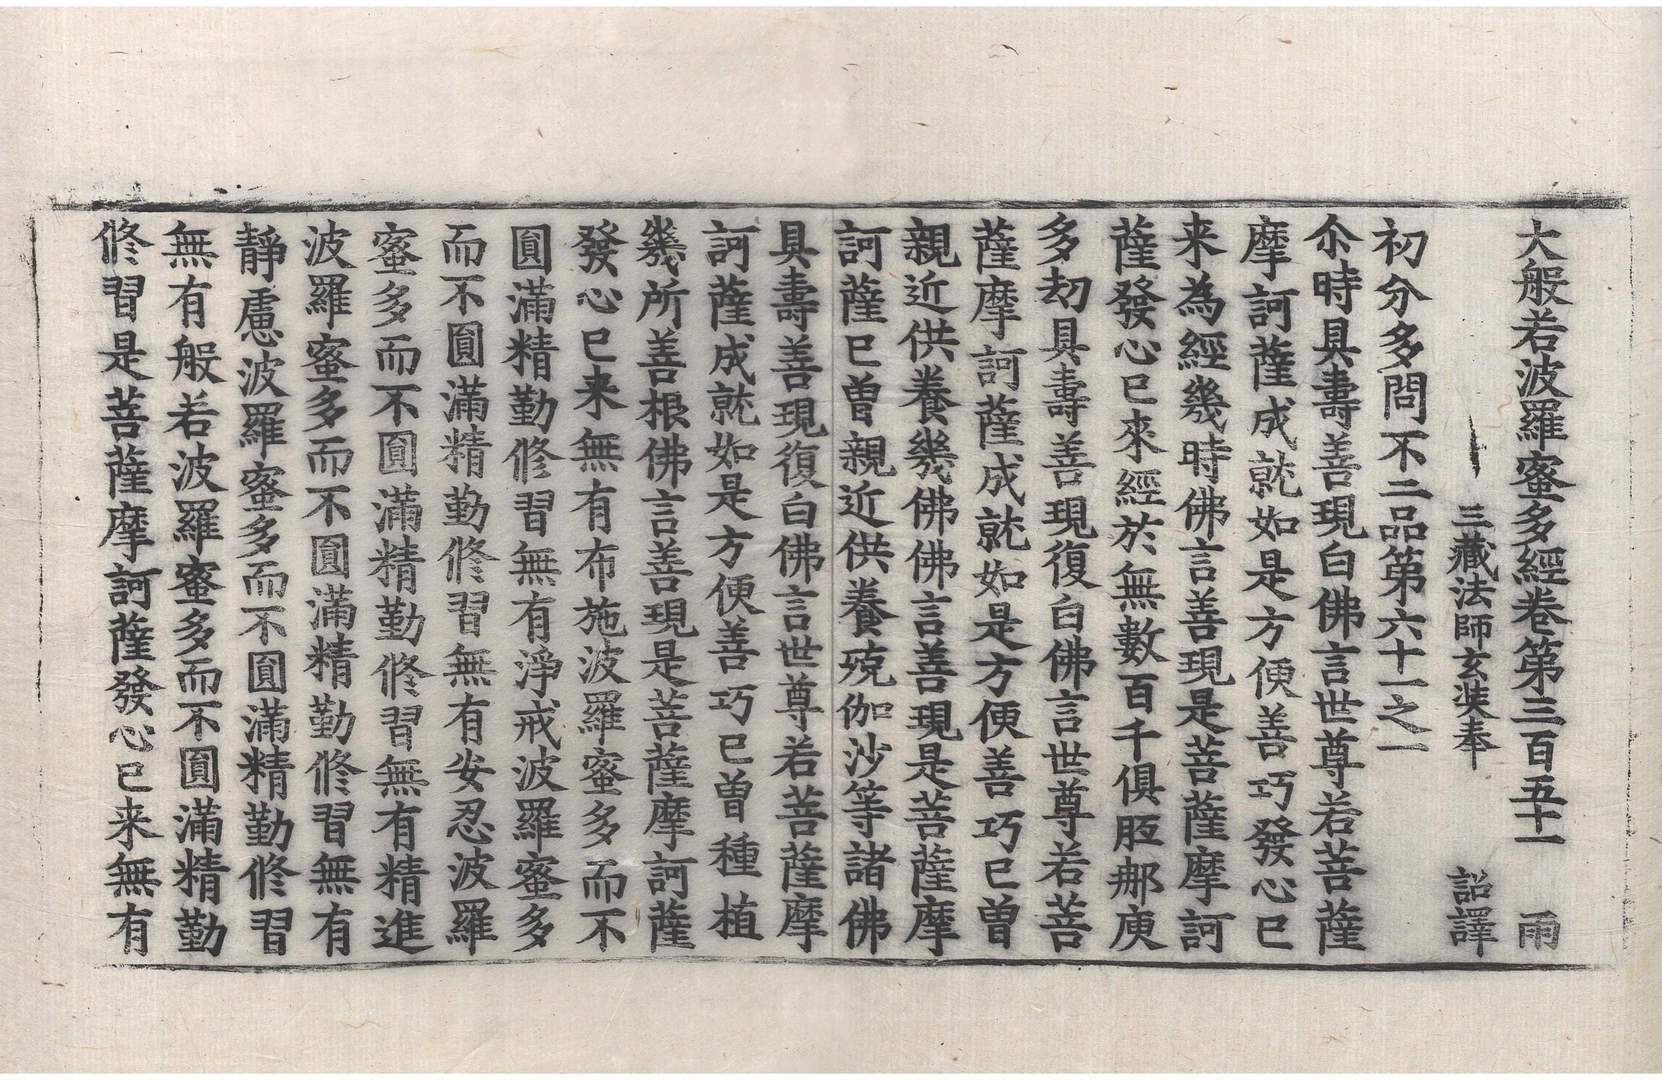 大般若波羅蜜多經卷第三百五十一　雨
三藏法師玄奘奉　詔譯
初分多問不二品第六十一之一
尒時具壽善現白佛言世尊若菩薩
摩訶薩成就如是方便善巧發心已
来為經幾時佛言善現是菩薩摩訶
薩發心已來經於無數百千俱胝那庾
多劫具壽善現復白佛言世尊若菩
薩摩訶薩成就如是方便善巧已曽
親近供養幾佛佛言善現是菩薩摩
訶薩已曽親近供養殑伽沙等諸佛
具壽善現復白佛言世尊若菩薩摩
訶薩成就如是方便善巧已曽種植
幾所善根佛言善現是菩薩摩訶薩
發心已来無有布施波羅蜜多而不
圓滿精勤修習無有淨戒波羅蜜多
而不圓滿精勤修習無有安忍波羅
蜜多而不圓滿精勤修習無有精進
波羅蜜多而不圓滿精勤修習無有
靜慮波羅蜜多而不圓滿精勤修習
無有般若波羅蜜多而不圓滿精勤
修習是菩薩摩訶薩發心已来無有